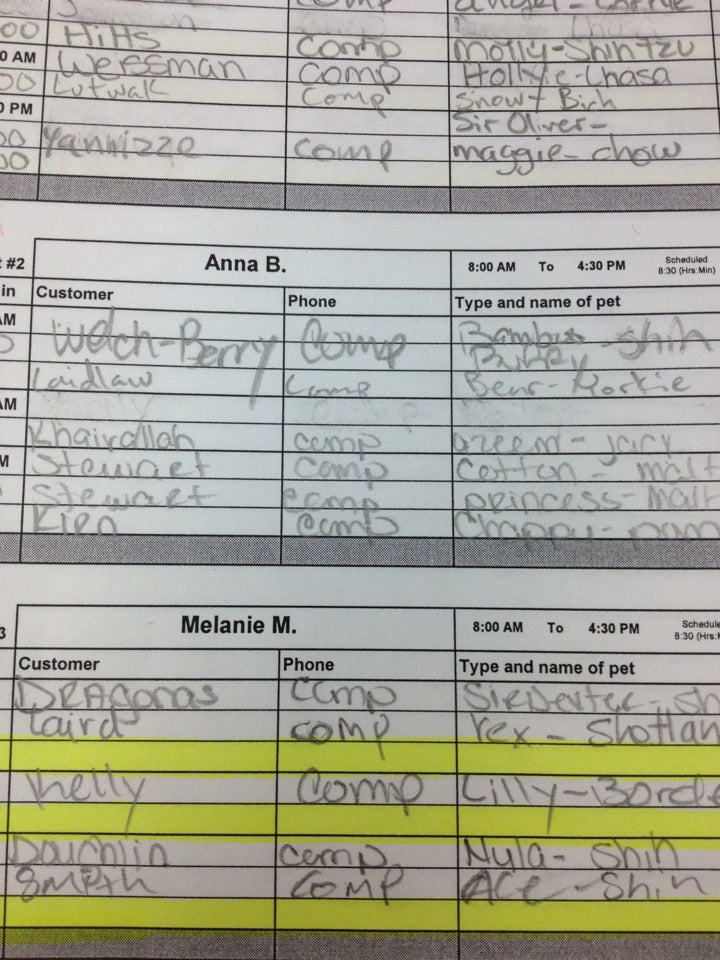 00 Hitts Comp Molly-Shihtzu
0 AM Weissman Comp Hollye-Lhasa
00 Lutwak Comp Snow+ Bich
0 PM Sir Oliver-
00 Yannizze Comp maggie- chow
00
#2 Anna B. 8:00 AM To 4:30 PM Scheduled 8:30 (Hrs:Min)
in Customer Phone Type and name of pet
AM Welch-Berry Comp -Shih
Laidlaw Comp Bear-
AM
Khairallah comp azeem- jack
M Stewart Comp Cotton - malt
Stewart comp princess- malt
Kien Comp Chappy- pom
3 Melanie M. 8:00 AM To 4:30 PM
Customer Phone Type and name of pet
DRAGONAS Comp
Laird comp rex - Shetlan
Kelly Comp Lilly-Borde
comp Nyla- Shih
Smith Comp Ace-Shih